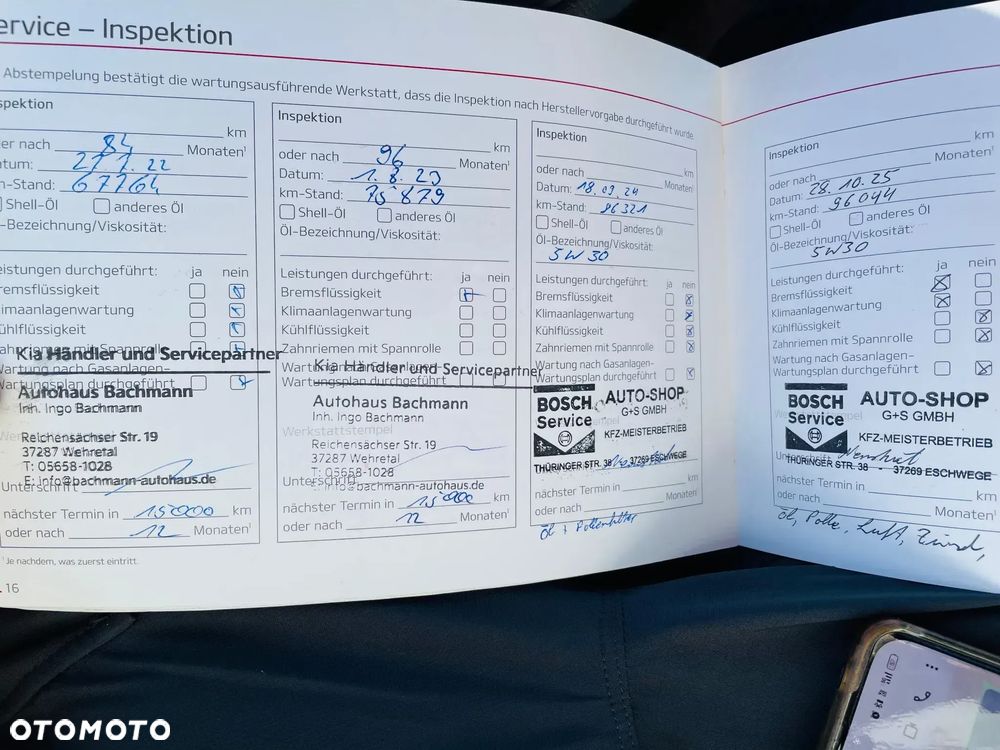 ervice – Inspektion
Abstempelung bestätigt die wartungsausführende Werkstatt, dass die Inspektion nach Herstellervorgabe durchgeführt wurde.
spektion
km
er nach 84 Monaten¹
tum: 27.7.22
m-Stand: 67764
Shell-Öl anderes Öl
-Bezeichnung/Viskosität:
eistungen durchgeführt: ja nein
Bremsflüssigkeit
limaanlagenwartung
ühlflüssigkeit
ahnriemen mit Spannrolle
artung nach Gasanlagen-
artungsplan durchgeführt
Kia Händler und Servicepartner
Autohaus Bachmann
Inh. Ingo Bachmann
Reichensächser Str. 19
37287 Wehretal
T: 05658-1028
E: info@bachmann-autohaus.de
Unterschrift
nächster Termin in 15000 km
oder nach 12 Monaten¹
¹ Je nachdem, was zuerst eintritt.
16
Inspektion
km
oder nach 96 Monaten¹
Datum: 1.8.23
km-Stand: 75879
Shell-Öl anderes Öl
Öl-Bezeichnung/Viskosität:
Leistungen durchgeführt: ja nein
Bremsflüssigkeit
Klimaanlagenwartung
Kühlflüssigkeit
Zahnriemen mit Spannrolle
Wartung nach Gasanlagen-
Wartungsplan durchgeführt
Kia Händler und Servicepartner
Autohaus Bachmann
Inh. Ingo Bachmann
Werkstattstempel
Reichensächser Str. 19
37287 Wehretal
T: 05658-1028
info@bachmann-autohaus.de
Unterschrift
nächster Termin in 15000 km
oder nach 12 Monaten¹
Inspektion
km
oder nach Monaten¹
Datum: 18.09.24
km-Stand: 86321
Shell-Öl anderes Öl
Öl-Bezeichnung/Viskosität:
5W30
Leistungen durchgeführt: ja nein
Bremsflüssigkeit
Klimaanlagenwartung
Kühlflüssigkeit
Zahnriemen mit Spannrolle
Wartung nach Gasanlagen-
Wartungsplan durchgeführt
BOSCH Service
AUTO-SHOP
G+S GMBH
KFZ-MEISTERBETRIEB
THÜRINGER STR. 38 - 37269 ESCHWEGE
nächster Termin in km
oder nach Monaten¹
Öl + Pollenfilter
Inspektion
km
oder nach Monaten¹
Datum: 28.10.25
km-Stand: 96044
Shell-Öl anderes Öl
Öl-Bezeichnung/Viskosität:
5W30
Leistungen durchgeführt: ja nein
Bremsflüssigkeit
Klimaanlagenwartung
Kühlflüssigkeit
Zahnriemen mit Spannrolle
Wartung nach Gasanlagen-
Wartungsplan durchgeführt
BOSCH Service
AUTO-SHOP
G+S GMBH
KFZ-MEISTERBETRIEB
Unterschrift
THÜRINGER STR. 38 - 37269 ESCHWEGE
nächster Termin in km
oder nach Monaten¹
Öl, Polle, Luft, Zünd,
OTOMOTO